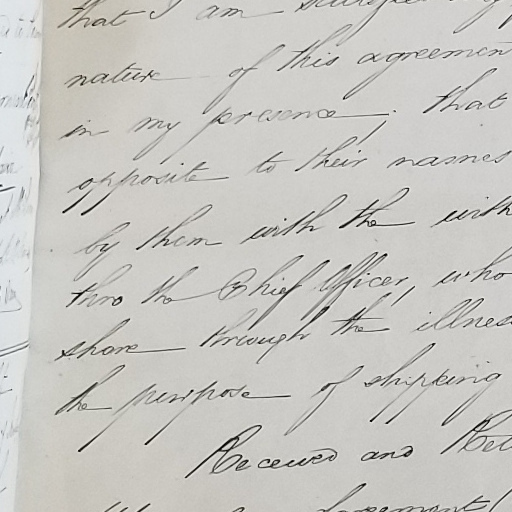 that I am satisfied
nature of this agreemen
in my presence; that
opposite to their names
by them with the with
thro the Chief Officer, who
share through the illnes
the purpose of shipping
Received and
Agreement